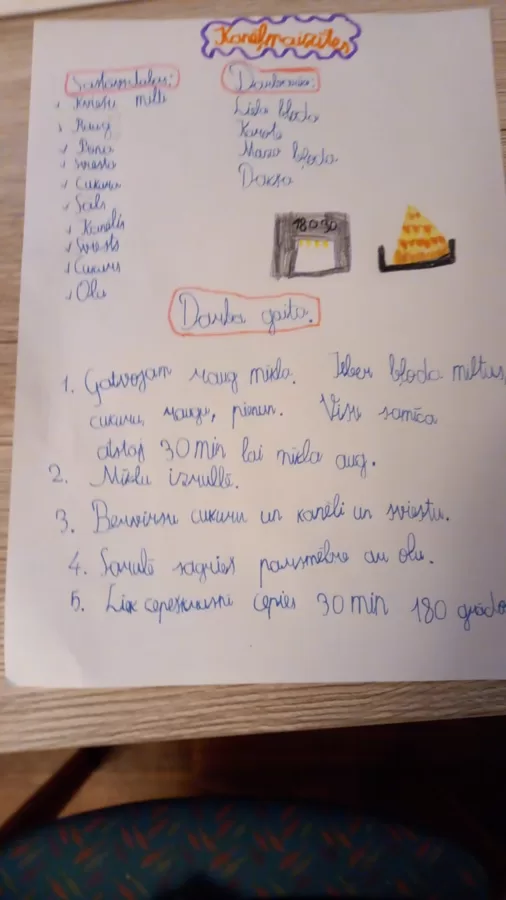 Kanēļmaizītes
Sastāvdaļas:
Kviešu milti
Raugs
Piens
Sviests
Cukurs
Sāls
Kanēlis
Sviests
Cukurs
Ola
Darbarīki:
Liela bļoda
Karote
Maza bļoda
Dakša
180 30
Darba gaita.
1. Gatavojam raug mīkla. Ieber bļoda miltus,
cukuru, raugu, pienun. Visu samīca
atstāj 30 min lai mīkla aug.
2. Mīklu izrullē.
3. Bervirsu cukuru un kanēli un sviestu.
4. Sarullē sagriež pārsmērē ar olu.
5. Liek cepeškrāsni cepies 30 min 180 grādo